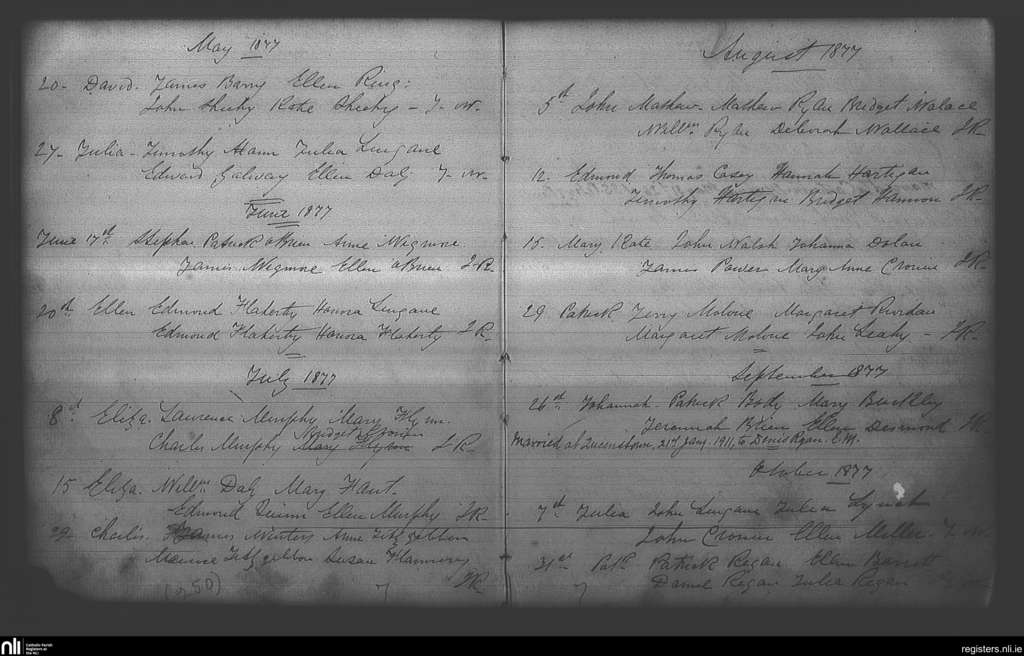 May 1877
20- David. James Barry Ellen Ring:
John Sheehy Kate Sheehy - T- W.
27- Julia - Timothy Mann Julia Lingane
Edward Galway Ellen Daly T- W.
June 1877
June 17th Stephen Patrick O'Brien Anne Wigmore
James Wigmore Ellen O'Brien J-R-
20th Ellen Edmond Flaherty Honora Lingane
Edmond Flaherty Honora Flaherty J R-
July 1877
8th Eliza. Lawrence Murphy Mary Flynn.
Bridget Cronin
Charles Murphy Mary Flynn J-R-
15 Eliza. Willm Daly Mary Hant.
Edmond Quinn Ellen Murphy J R-
29 Charles. James Winters Anne Fitzgibbon
Maurice Fitzgibbon Susan Flannery
J R-
(250) 7
August 1877
5th John Mathew Mathew Ryan Bridget Wallace
Willm Ryan Deborah Wallace J R-
12. Edmond Thomas Casey Hannah Hartigan
Timothy Hartigan Bridget J R-
15. Mary Kate John Walsh Johanna Dolan
James Power Mary Anne Cronin J R-
29 Patrick Jerry Molone Margaret Riordan
Margaret Molone John Leahy - J R-
September 1877
26th Johannah. Patrick Mary Buckley
Jeremiah Brien Ellen Desmond J R
Married at Queenstown, 21st Jany. 1911, to Denis Ryan. E.M.
October 1877
7th Julia John Lingane Julia Lynch
John Cronin Ellen Miller. T- W.
31st Patk Patrick Regan Ellen Barrett
7 Daniel Regan Julia Regan
nli Catholic Parish Registers at the NLI
registers.nli.ie